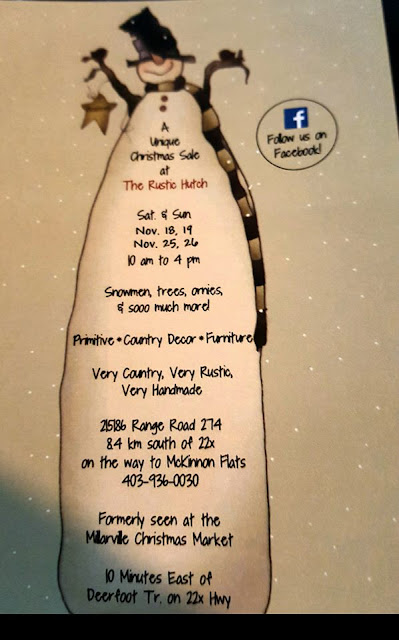 A
Unique
Christmas Sale
at
The Rustic Hutch
Sat. & Sun
Nov. 18, 19
Nov. 25, 26
10 am to 4 pm
Snowmen, trees, ornies,
& sooo much more!
Primitive • Country Decor • Furniture
Very Country, Very Rustic,
Very Handmade
215186 Range Road 274
8.4 km south of 22x
on the way to McKinnon Flats
403-936-0030
Formerly seen at the
Millarville Christmas Market
10 Minutes East of
Deerfoot Tr. on 22x Hwy
f
Follow us on
Facebook!